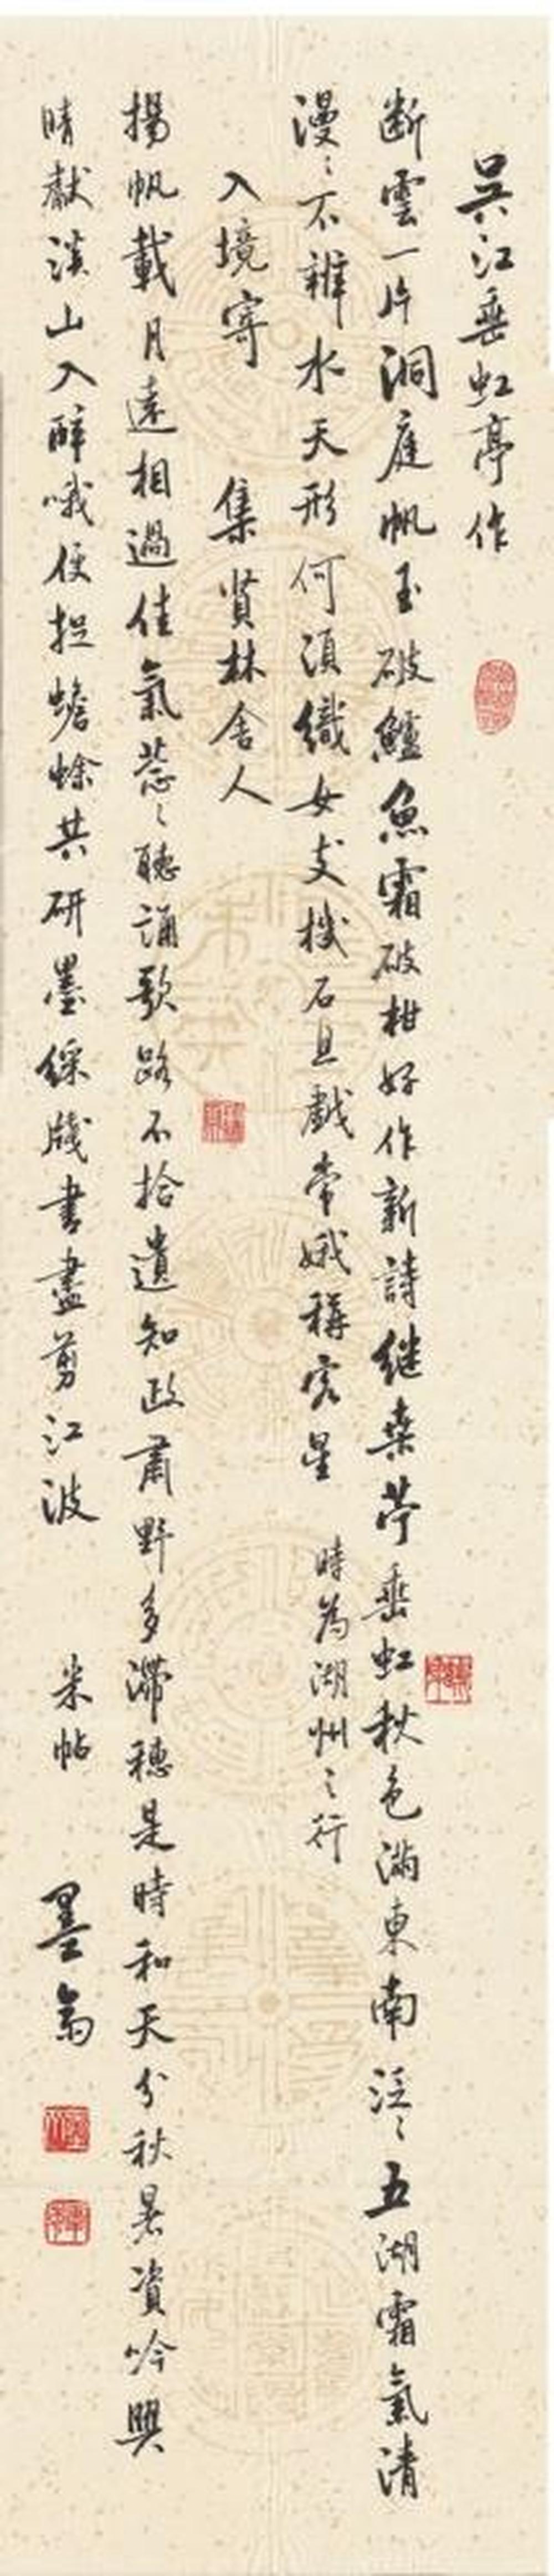 吴江垂虹亭作
断雲一片洞庭帆玉破鱸魚霜破柑好作新詩継桑苧垂虹秋色满東南泛〻五湖霜氣清
漫〻不辨水天形何須織女支機石且戯常娥稱客星 時為湖州之行
入境寄 集贤林舍人
揚帆載月遠相過佳氣葱〻聽誦歌路不拾遺知政肅野多滯穗是時和天分秋暑資吟興
晴獻溪山入醉哦便捉蟾蜍共研墨綵牋書盡剪江波 米帖 墨翁